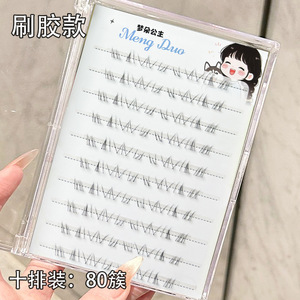 刷胶款
梦朵公主
Meng Duo
十排装：80簇